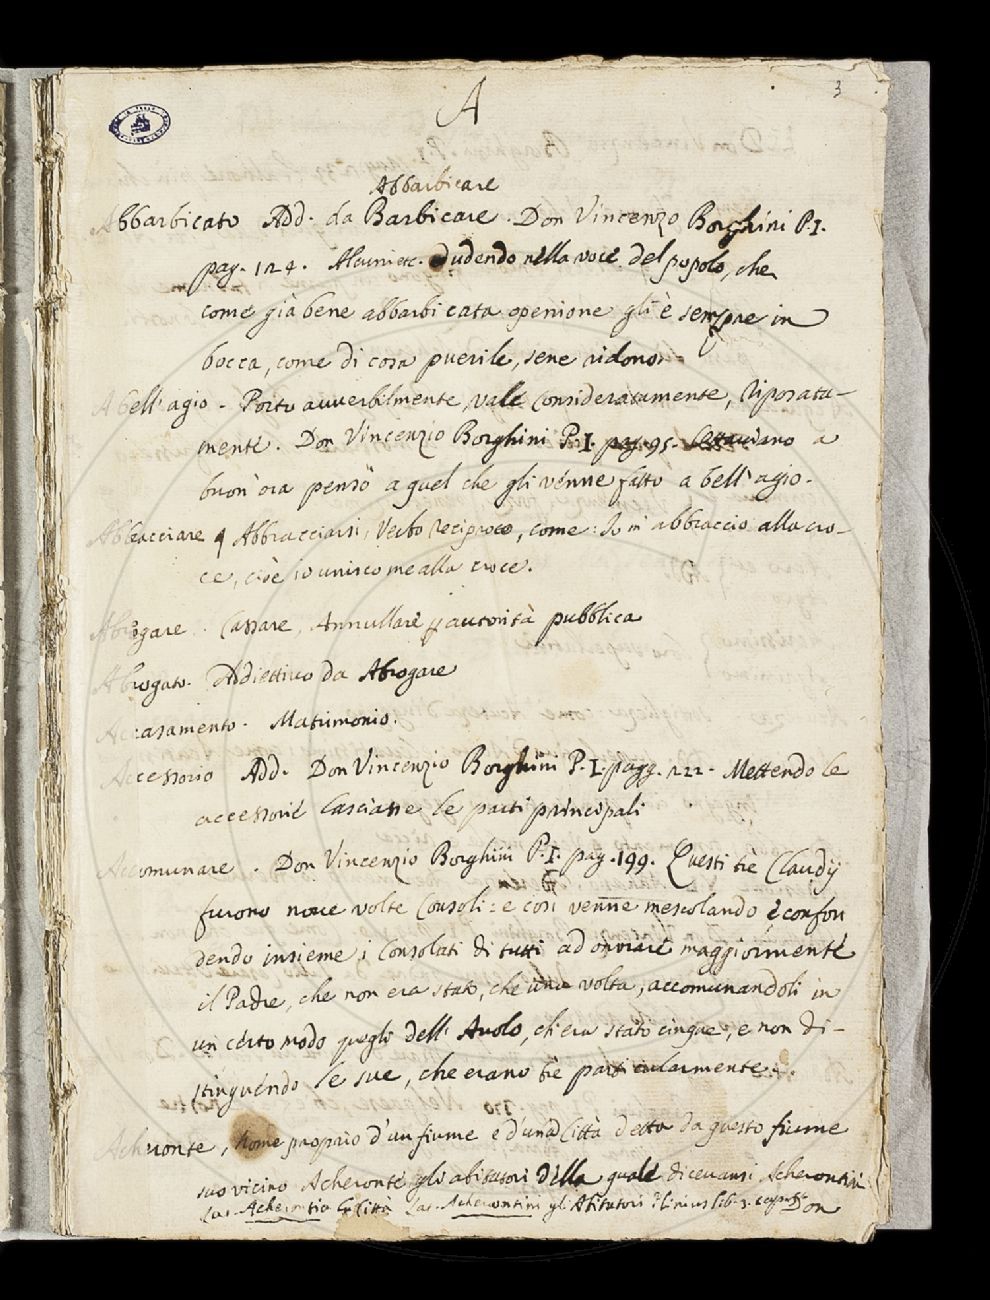 3
A
Abbarbicare
Abbarbicato Add. da Barbicare. Don Vincenzo Borghini P.I.
pag. 124. Alcuni etc. dudendo nella voce del popolo, che
come già bene abbarbicata openione gli è sempre in
bocca, come di cosa puerile, sene ridono.
A bell'agio. Posto avverbilmente, vale Consideratamente, Riposata-
mente. Don Vincenzio Borghini P.I. pag. 95. a
buon'ora pensò a quel che gli venne fatto a bell'agio.
Abbracciare Abbracciarsi, Verbo reciproco, come: Io m'abbraccio alla cro-
ce, cioè io unisco me alla croce.
Abrogare. Cassare, Annullare autorità pubblica
Abrogato. Addiettivo da Abrogare
Accasamento. Matrimonio.
Accessorio Add. Don Vincenzio Borghini P.I. pagg. 222. Mettendo le
accessorie lasciasse le parti principali
Accomunare. Don Vincenzio Borghini P.I. pag. 199. Questi tre Claudij
furono nove volte Consoli: e così venne mescolando, e confon
dendo insieme i Consolati di tutti ad onorare maggiormente
il Padre, che non era stato, che una volta, accomunandoli in
un certo modo quegli dell'Avolo, ch'era stato cinque, e non di-
stinguendo le sue, che erano tre particularmente.
Acheronte, Nome proprio d'un fiume e d'una Città detta da questo fiume
suo vicino Acheronte gli abitatori della quale dicevansi Acherontini
Lat. Acherontia Città Lat. Acherontini gli Abitatori Plinius lib. 3. cap. Don